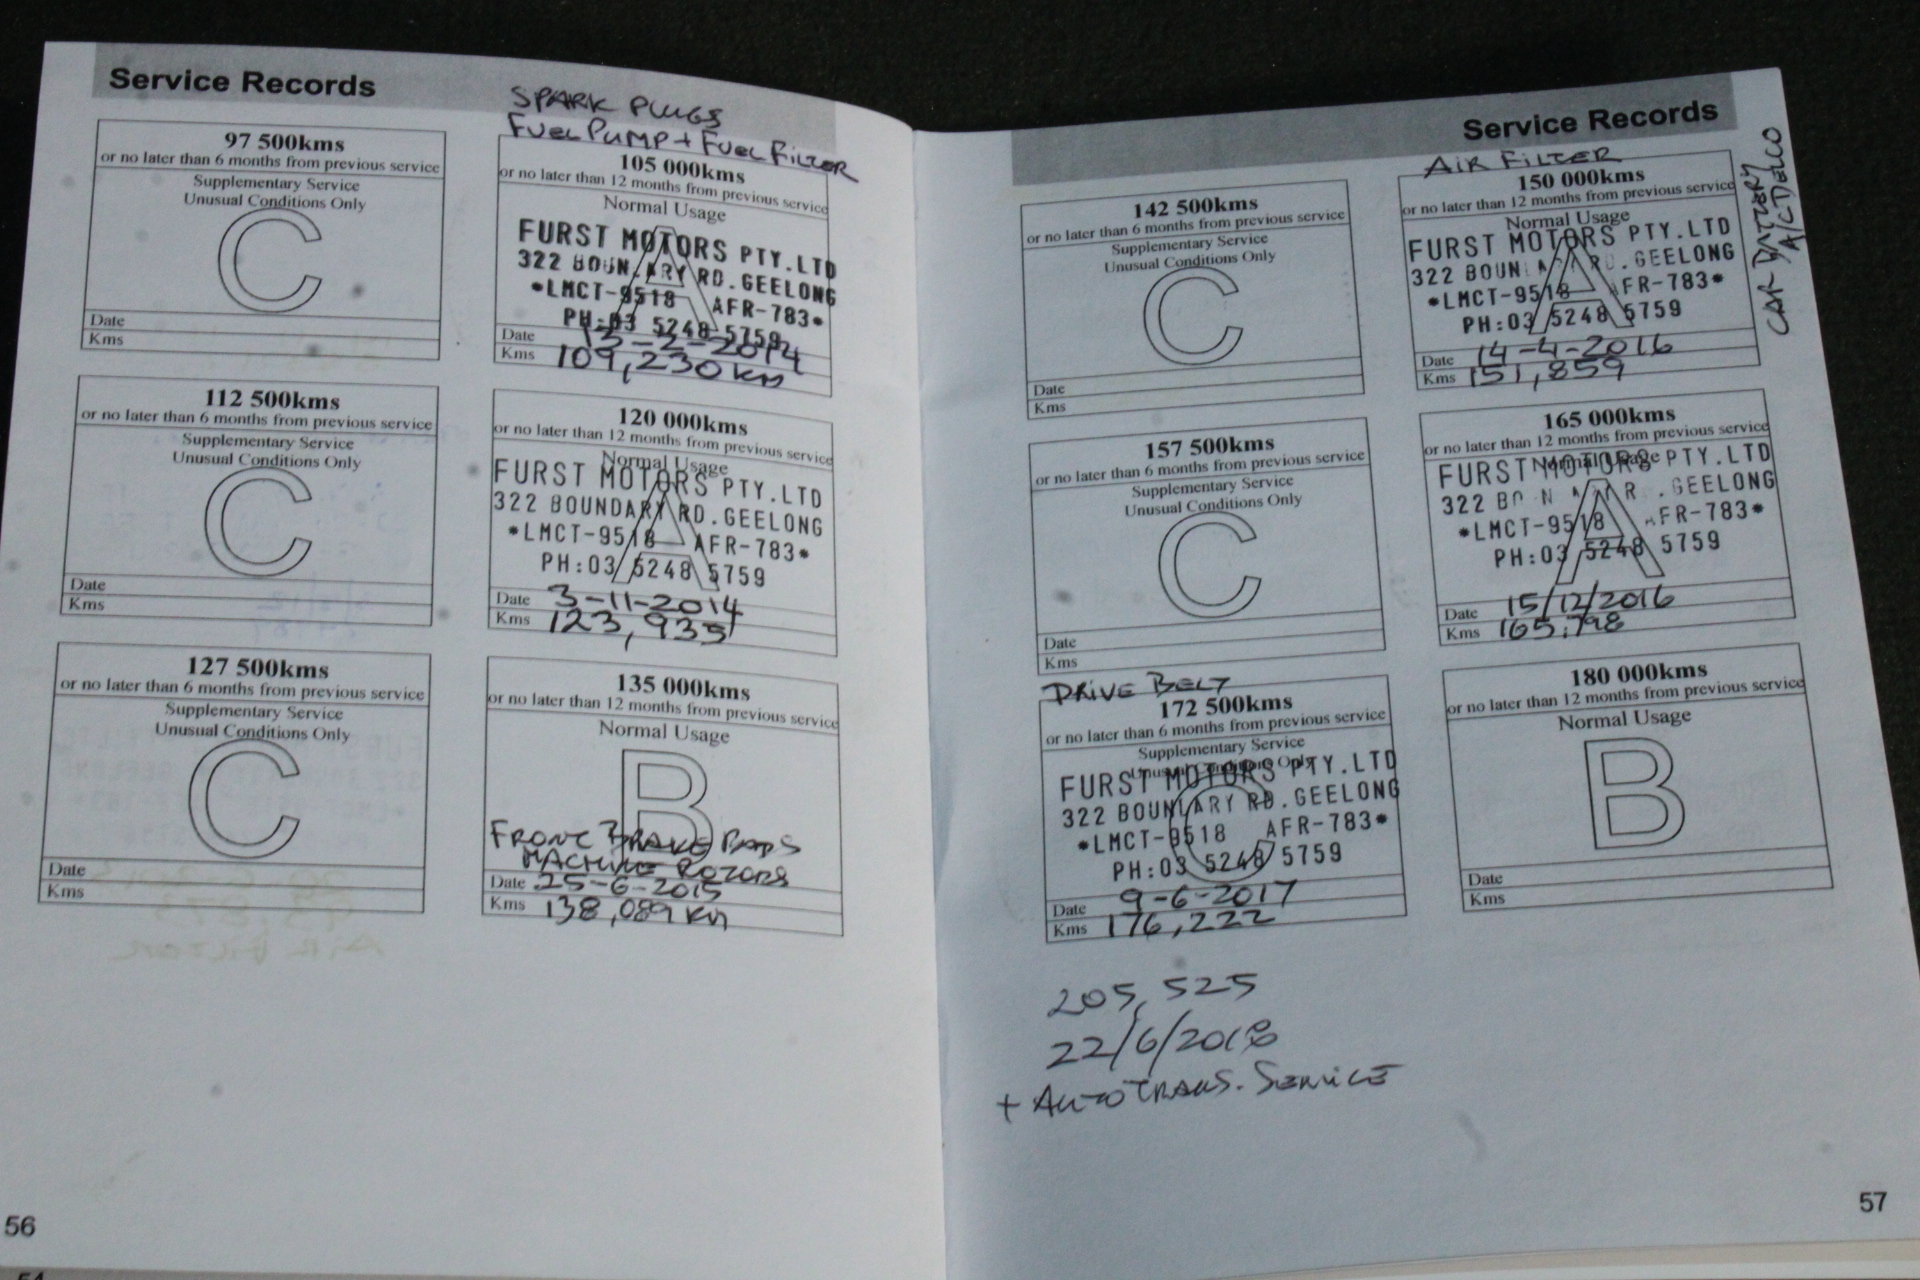 Service Records
97 500kms
or no later than 6 months from previous service
Supplementary Service
Unusual Conditions Only
C
Date
Kms
SPARK PLUGS
FUEL PUMP + FUEL FILTER
105 000kms
or no later than 12 months from previous service
Normal Usage
A
FURST MOTORS PTY.LTD
322 BOUNDARY RD.GEELONG
*LMCT-9518 AFR-783*
PH:03 5248 5759
Date 13-2-2014
Kms 109,230 km
112 500kms
or no later than 6 months from previous service
Supplementary Service
Unusual Conditions Only
C
Date
Kms
120 000kms
or no later than 12 months from previous service
Normal Usage
A
FURST MOTORS PTY.LTD
322 BOUNDARY RD.GEELONG
*LMCT-9518 AFR-783*
PH:03 5248 5759
Date 3-11-2014
Kms 123,935
127 500kms
or no later than 6 months from previous service
Supplementary Service
Unusual Conditions Only
C
Date
Kms
135 000kms
or no later than 12 months from previous service
Normal Usage
B
FRONT BRAKE PADS
MACHINE ROTORS
Date 25-6-2015
Kms 138,089 km
56
Service Records
142 500kms
or no later than 6 months from previous service
Supplementary Service
Unusual Conditions Only
C
Date
Kms
AIR FILTER
150 000kms
or no later than 12 months from previous service
Normal Usage
A
FURST MOTORS PTY.LTD
322 BOUNDARY RD.GEELONG
*LMCT-9518 AFR-783*
PH:03 5248 5759
Date 14-4-2016
Kms 151,859
CAR BATTERY
A/C DELCO
157 500kms
or no later than 6 months from previous service
Supplementary Service
Unusual Conditions Only
C
Date
Kms
165 000kms
or no later than 12 months from previous service
Normal Usage
A
FURST MOTORS PTY.LTD
322 BOUNDARY RD.GEELONG
*LMCT-9518 AFR-783*
PH:03 5248 5759
Date 15/12/2016
Kms 165,798
DRIVE BELT
172 500kms
or no later than 6 months from previous service
Supplementary Service
Unusual Conditions Only
C
FURST MOTORS PTY.LTD
322 BOUNDARY RD.GEELONG
*LMCT-9518 AFR-783*
PH:03 5248 5759
Date 9-6-2017
Kms 176,222
180 000kms
or no later than 12 months from previous service
Normal Usage
B
Date
Kms
205,525
22/6/2018
+ AUTO TRANS. SERVICE
57